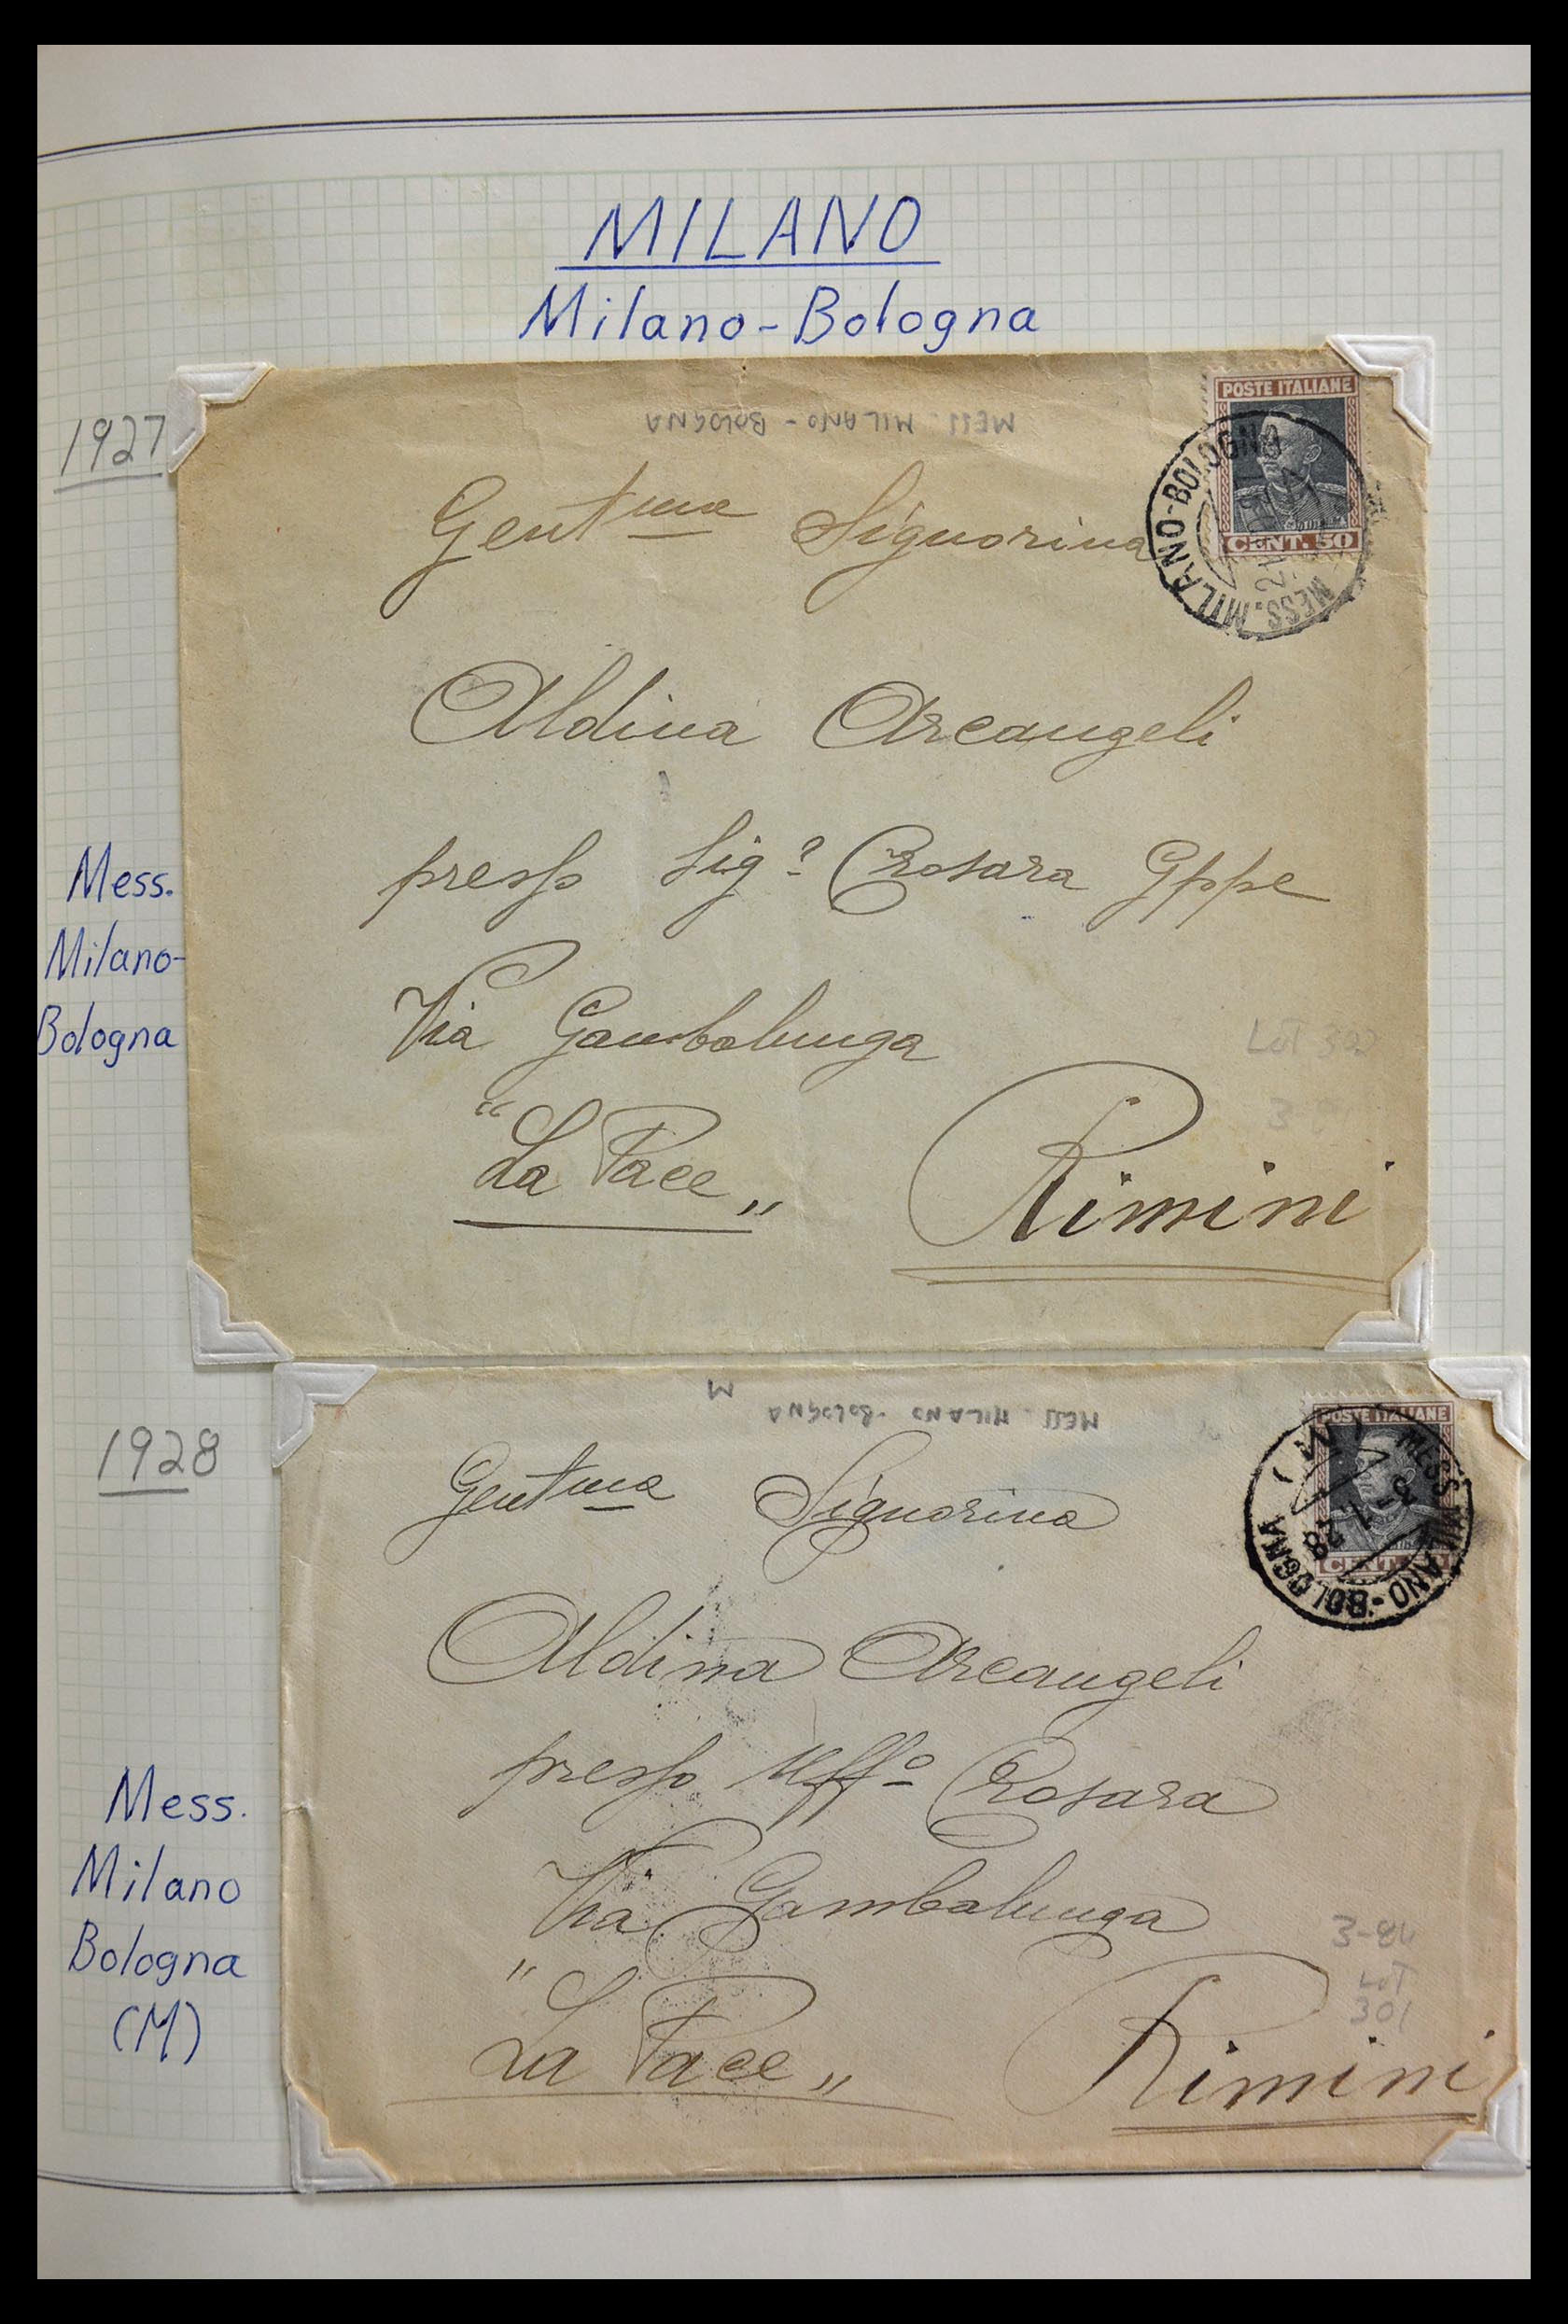 MILANO
Milano-Bologna
1927
MESS. MILANO - BOLOGNA
POSTE ITALIANE
CENT. 50
MESS. MILANO-BOLOGNA
Gentma Signorina
Aldina Arcangeli
Mess.
Milano-
Bologna
presso Sig.
Crosara Gppe
Via Gambalunga
LOT
"La Pace"
Rimini
1928
M
MESS. MILANO - BOLOGNA
POSTE ITALIANE
CENT.
MESS. MILANO-BOLOGNA (M)
3-1 28
Gentma Signorina
Aldina Arcangeli
presso Uffo Crosara
Mess.
Milano
Bologna
(M)
Via Gambalunga
3-84
LOT
301
"La Pace"
Rimini